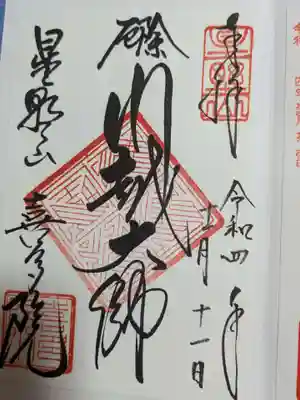 奉拝
令和四年
十一月十一日
厄除
川越大師
星野山
喜多院